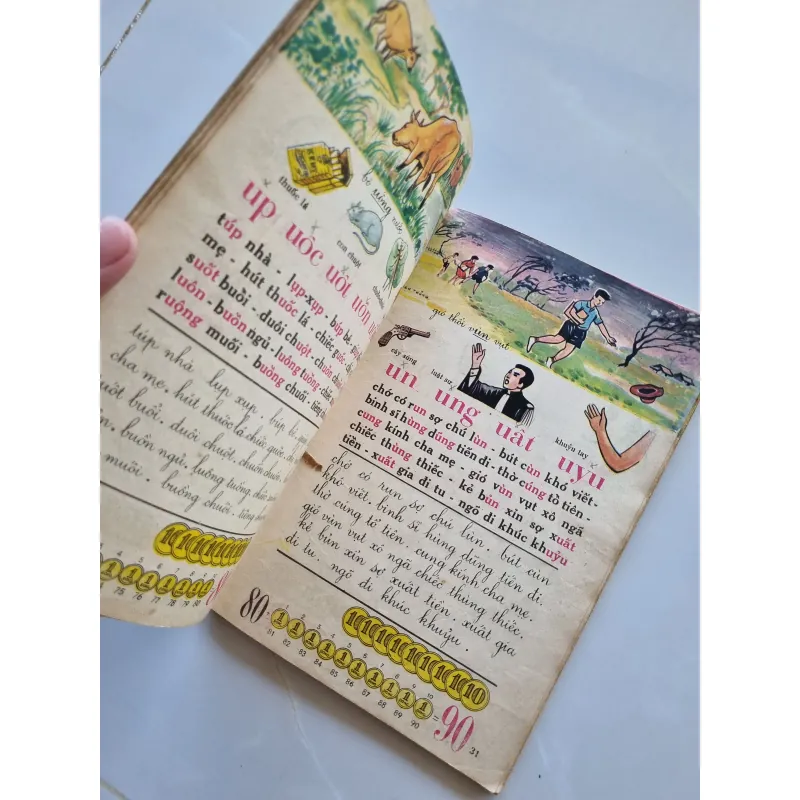 bò uống nước
thuốc lá
con chuột
up uôc uôt uôn
túp nhà - lụp-xụp - búp bê,
mẹ - hút thuốc lá - chiếc guốc
suốt buổi - đuôi chuột - chuồn
luôn - buồn ngủ - luống tuồng
ruộng muối - buồng chuối -
túp nhà lụp xụp, búp bê
cha mẹ, hút thuốc lá chiếc guốc,
suốt buổi, đuôi chuột, chuồn chuồn,
buồn ngủ, luống tuồng,
muối, buồng chuối,
4 5 6 7 8 9 10
75 76 77 78 79 80
gió thổi vùn vụt
cây súng
luật sư
khuỷu tay
un ung uât uyu
chó có run sợ chú lùn - bút cùn khó viết -
binh sĩ hùng dũng tiến đi - thờ cúng tổ tiên -
cung kính cha mẹ - gió vùn vụt xô ngã
chiếc thùng thiếc - kẻ bún xin sợ xuất
tiền - xuất gia đi tu - ngõ đi khúc khuỷu
chó có run sợ chú lùn, bút cùn
khó viết, binh sĩ hùng dũng tiến đi.
thờ cúng tổ tiên, cung kính cha mẹ.
gió vùn vụt xô ngã chiếc thùng thiếc.
kẻ bún xin sợ xuất tiền, xuất gia
đi tu, ngõ đi khúc khuỷu.
10 10 10 10 10 10 10 10
80 1 2 3 4 5 6 7 8 9 10
1 1 1 1 1 1 1 1 1 1 = 90
81 82 83 84 85 86 87 88 89 90
31